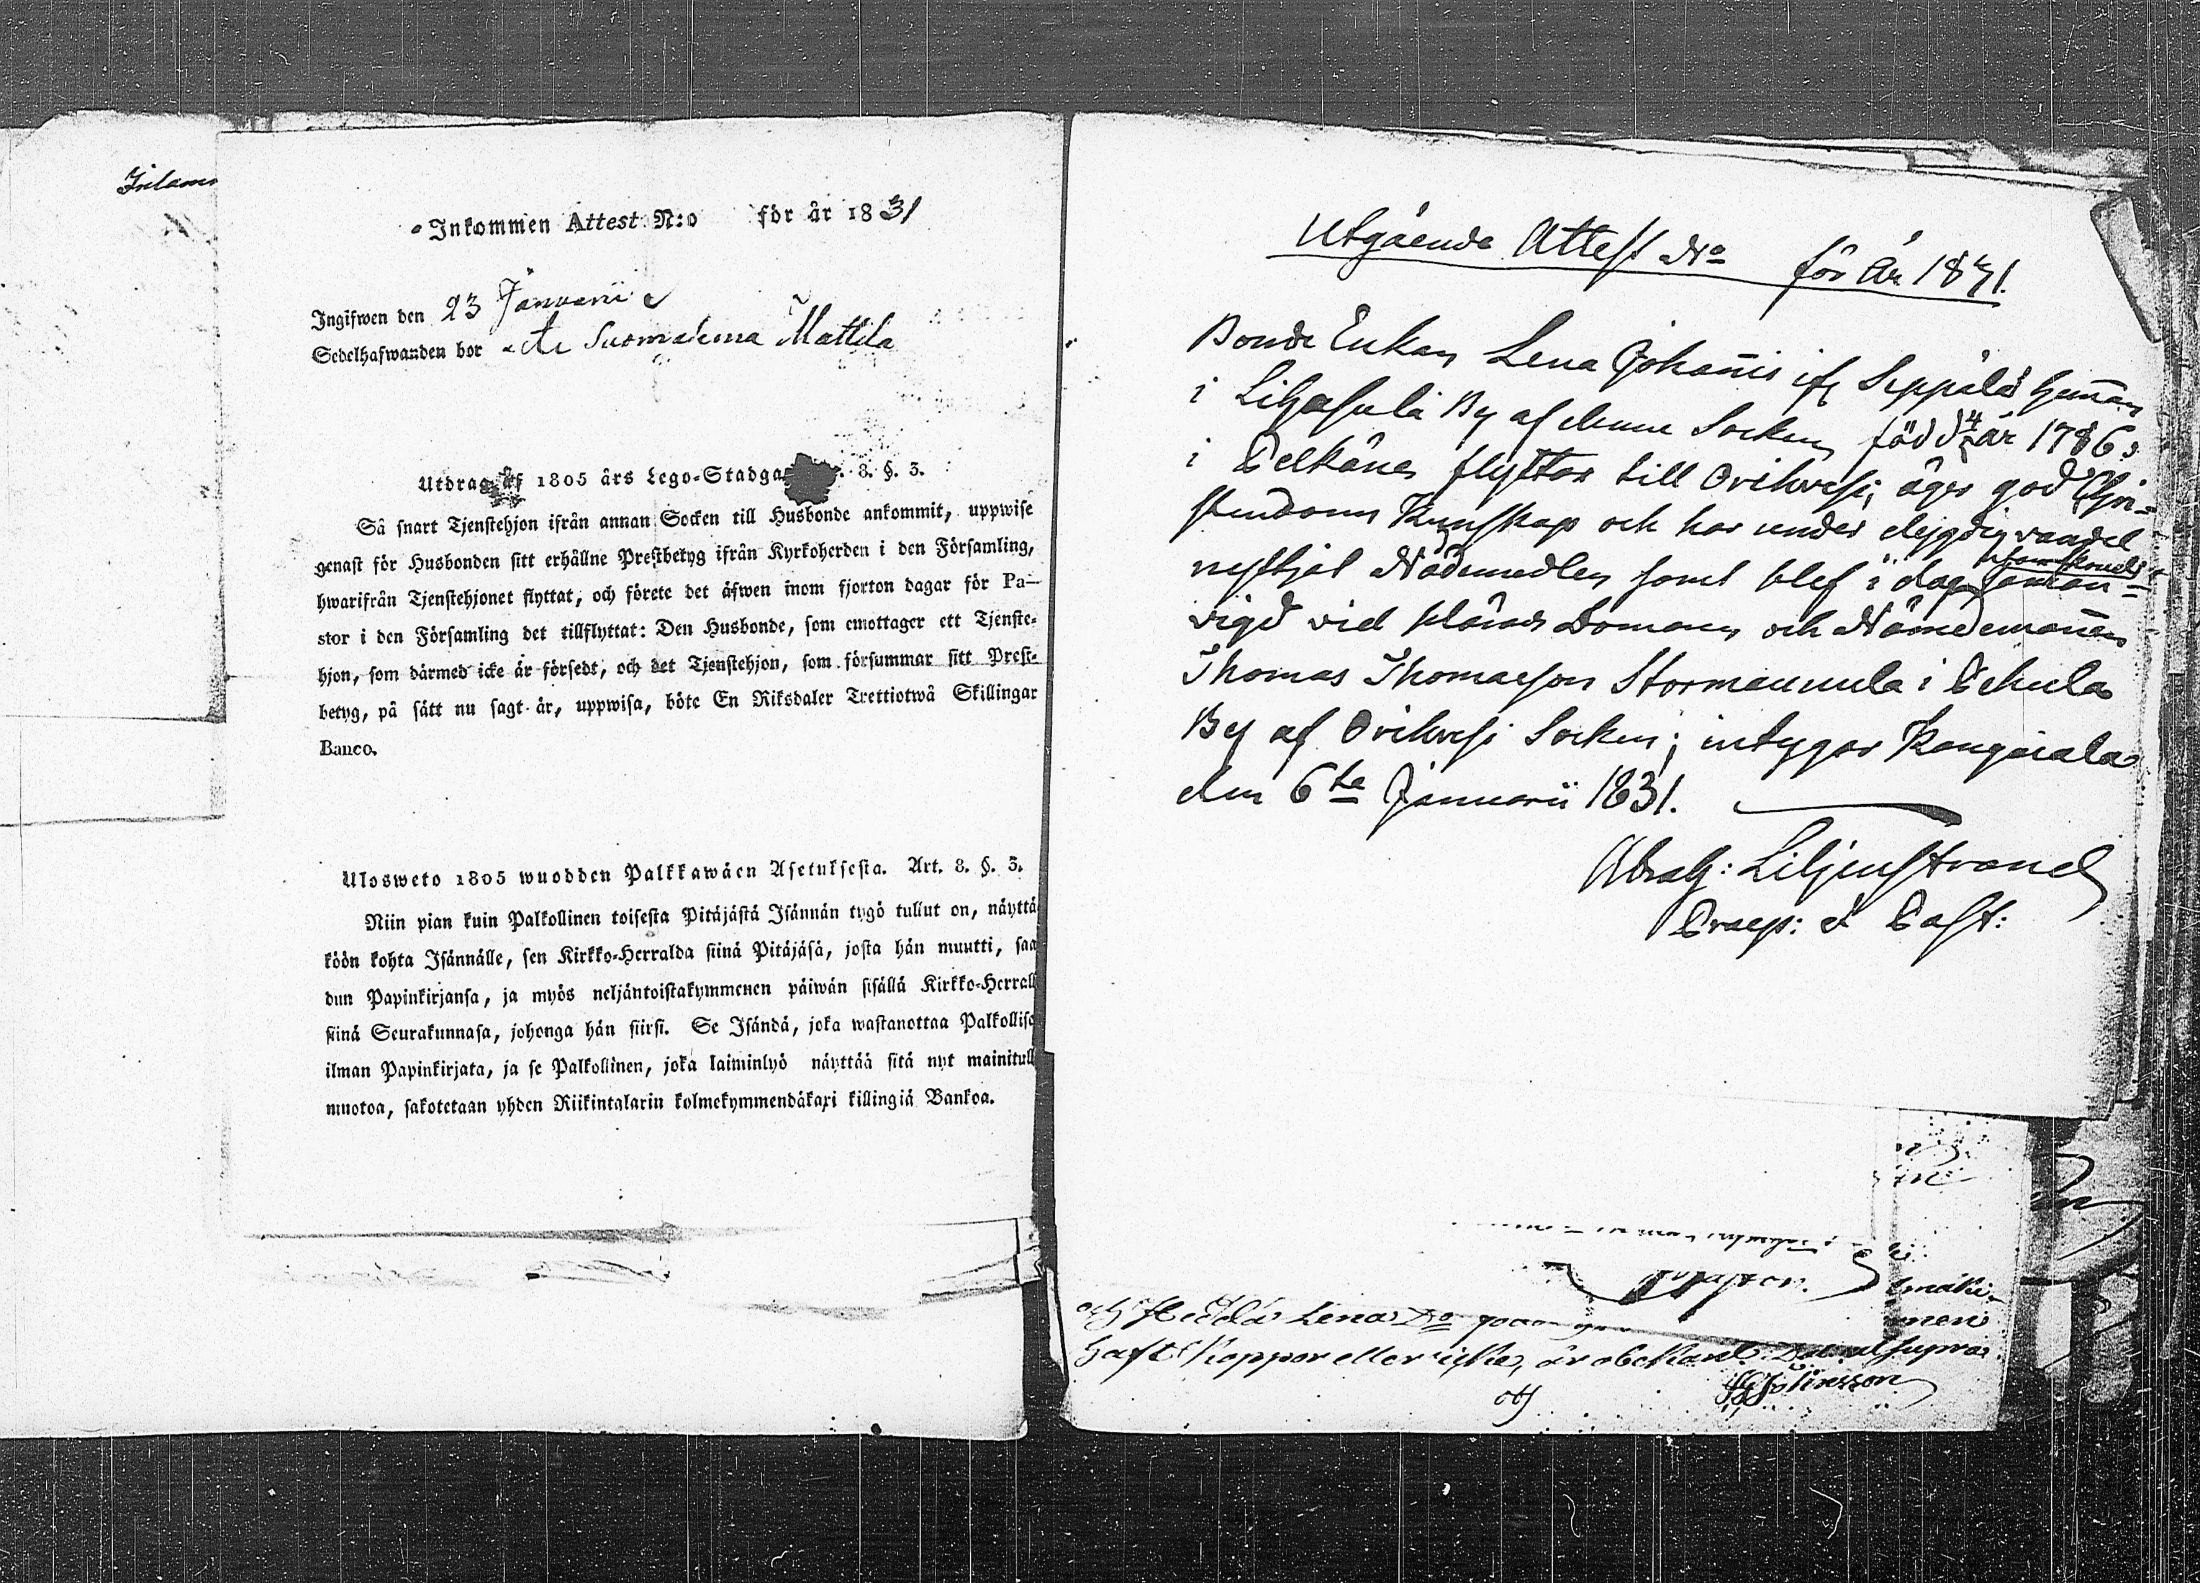 Inkommen Attest N:o för år 1831
Ingifwen den 23 Januarii
Sedelhafwanden bor Suomalema Mattila
Utdrag af 1805 års Lego-Stadga 8. §. 3.
Så snart Tjenstehjon ifrån annan Socken till Husbonde ankommit, uppwise
genast för Husbonden sitt erhållne Prestbetyg ifrån Kyrkoherden i den Församling,
hwarifrån Tjenstehjonet flyttat, och förete det äfwen inom fjorton dagar för Pa-
stor i den Församling det tillflyttat: Den Husbonde, som emottager ett Tjenste-
hjon, som därmed icke är försedt, och det Tjenstehjon, som försummar sitt Prest-
betyg, på sätt nu sagt är, uppwisa, böte En Riksdaler Trettiotwå Skillingar
Banco.
Ulosweto 1805 wuodden Palkkawäen Asetuksesta. Art. 8. §. 3.
Niin pian kuin Palkollinen toisesta Pitäjästä Isännän tygö tullut on, näyttä
köön kohta Isännälle, sen Kirkko-Herralda siinä Pitäjäsä, josta hän muutti, saa
dun Papinkirjansa, ja myös neljäntoistakymmenen päiwän sisällä Kirkko-Herrall
siinä Seurakunnasa, johonga hän siirsi. Se Isändä, joka wastanottaa Palkollise
ilman Papinkirjata, ja se Palkollinen, joka laiminlyö näyttää sitä nyt mainitull
muotoa, sakotetaan yhden Riikintalarin kolmekymmendäkaxi killingiä Bankoa.
Utgående Attest No för År 1831.
Bonde Enkan Lena Johannis ifr Seppälä hemman
i Lihasula By af denne Socken, född år 1786
i Pelkäne flyttar till Orihvesi; äger god Chri-
stendoms Kunskap och har under dygdig vandel
nyttjat Nådemedlen samt blef i dag samman-
vigd vid Häradsdomaren och Nämdemannen
Thomas Thomasson Stormannula i Pehula
By af Orihvesi Socken; intygar Kangasala
den 6te Januarii 1831.
Abrah: Liljenstrand
Praep: & Past:
Pastor.
och Hedda Lena Do
haft Koppor eller icke, är obekant